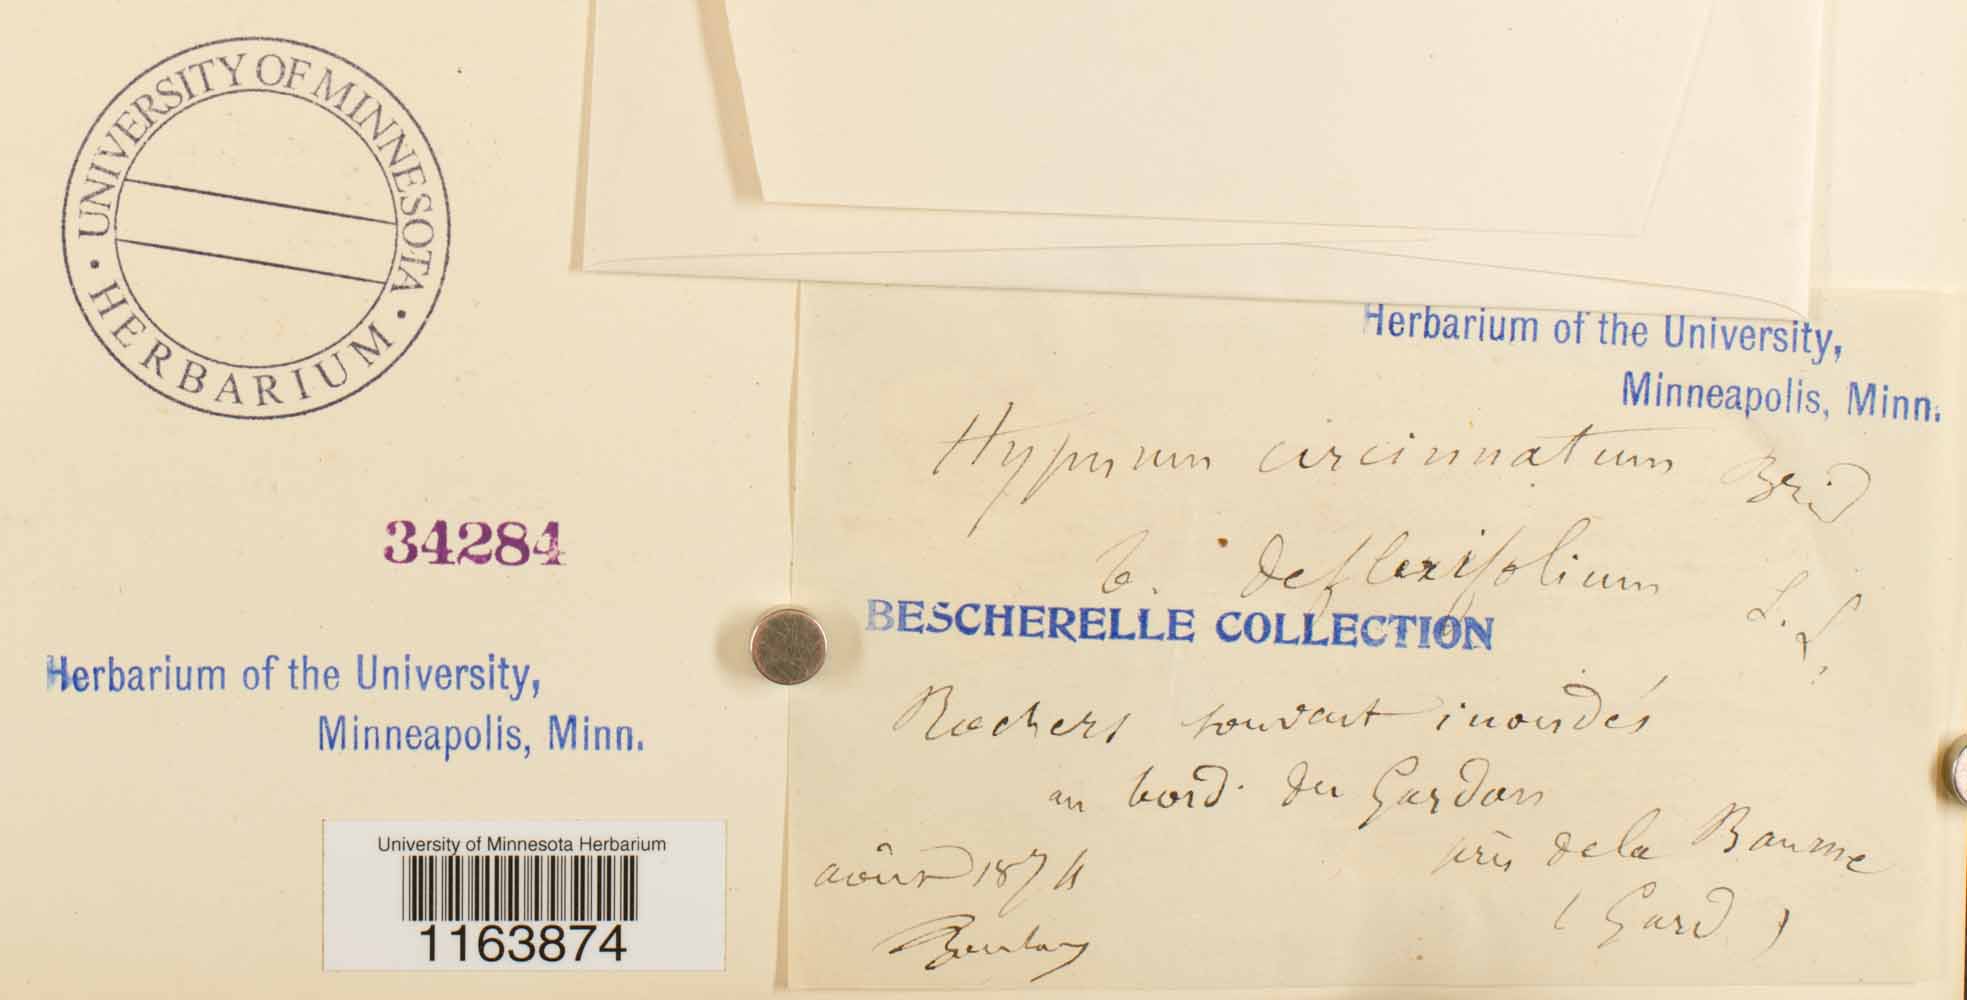 UNIVERSITY OF MINNESOTA
• HERBARIUM •
34284
Herbarium of the University,
Minneapolis, Minn.
University of Minnesota Herbarium
1163874
Herbarium of the University,
Minneapolis, Minn.
Hypnum circinnatum Brid
b. deflexifolium
BESCHERELLE COLLECTION
Rochers souvent inondés
au bord du Gardon
près de la Baume
(Gard)
août 187
Boulay